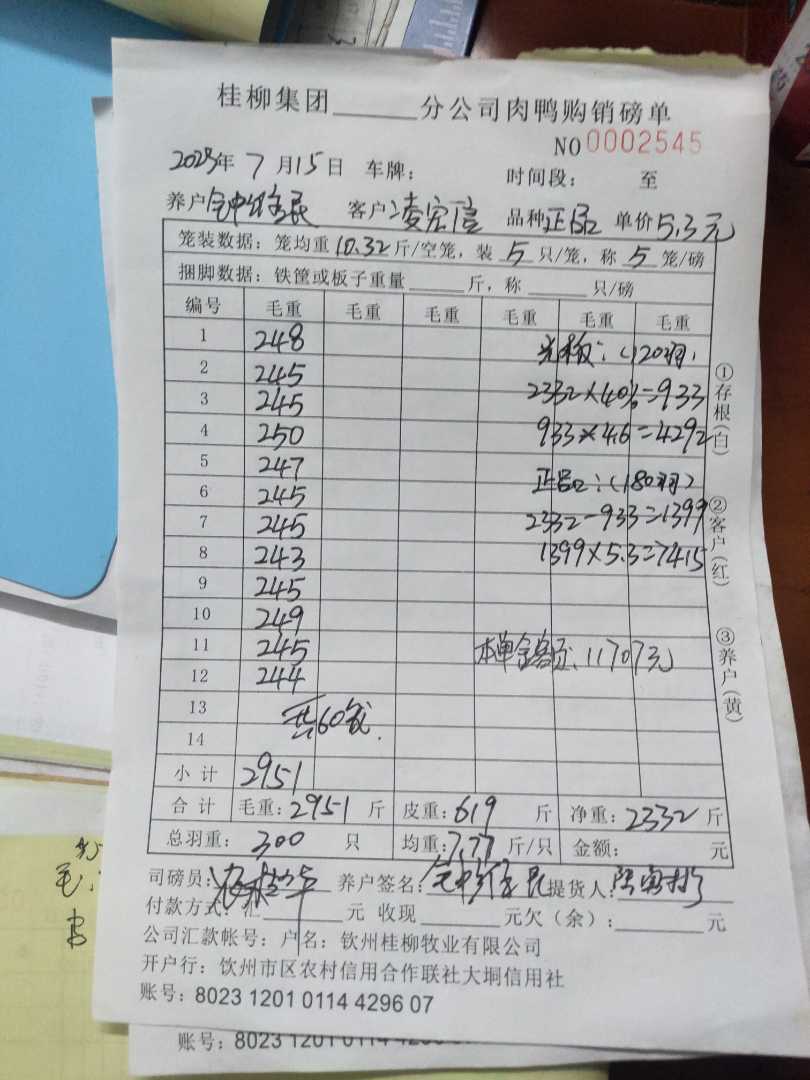 桂柳集团______分公司肉鸭购销磅单
NO 0002545
2023年 7 月 15 日 车牌： 时间段： 至
养户 客户：凌宏信 品种 正品 单价 5.3元
笼装数据：笼均重 10.32 斤/空笼，装 5 只/笼，称 5 笼/磅
捆脚数据：铁筐或板子重量______斤，称______只/磅
编号 毛重 毛重 毛重 毛重 毛重 毛重
1 248
2 245
3 245
4 250
5 247
6 245
7 245
8 243
9 245
10 249
11 245
12 244
13
14
共60笼
（120羽）
2332×40%=933
933×4.6=4292
正品：（180羽）
2332-933=1399
1399×5.3=7415
本单金额：11707元
小计 2951
合计 毛重：2951 斤 皮重：619 斤 净重：2332 斤
总羽重： 300 只 均重：7.77 斤/只 金额： 元
司磅员： 养户签名： 提货人：
付款方式：汇______元 收现______元欠（余）：______元
公司汇款帐号：户名：钦州桂柳牧业有限公司
开户行：饮州市区农村信用合作联社大垌信用社
账号：8023 1201 0114 4296 07
①存根（白）
②客户（红）
③养户（黄）
账号：8023 1201 0114
毛